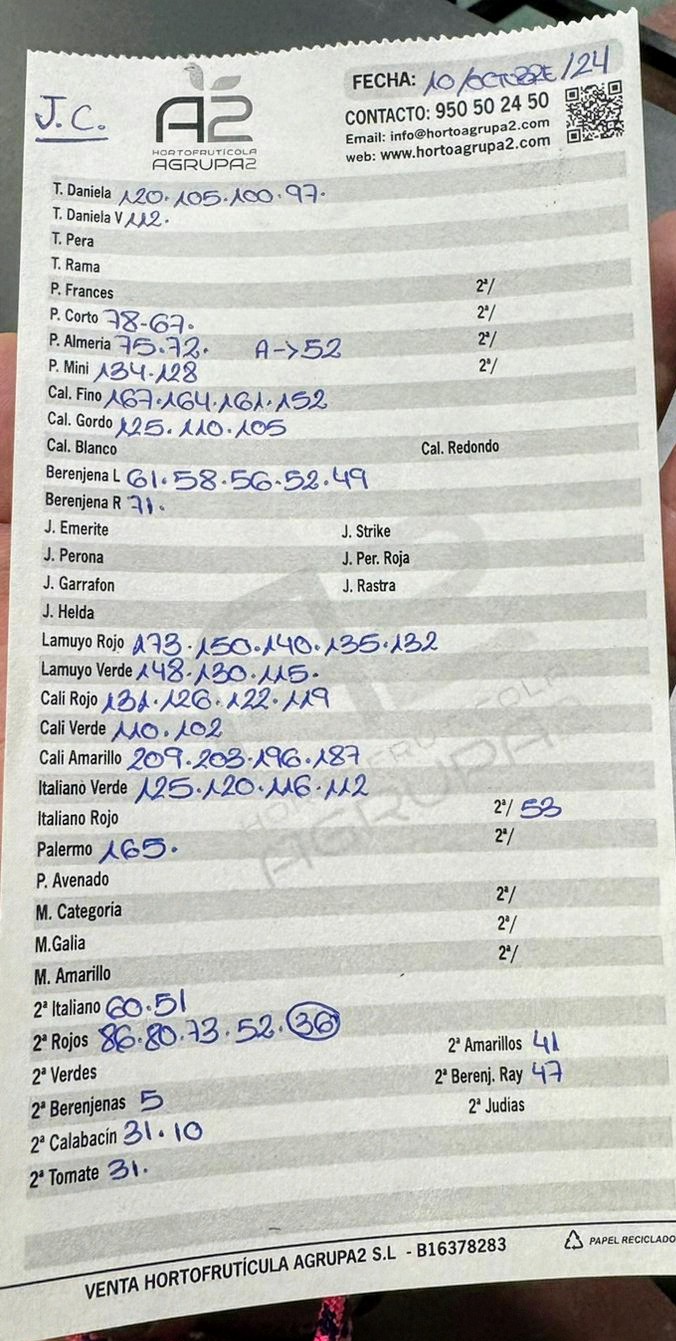 J.C.
A2
HORTOFRUTÍCOLA
AGRUPA2
FECHA: 10/OCTUBRE/24
CONTACTO: 950 50 24 50
Email: info@hortoagrupa2.com
web: www.hortoagrupa2.com
T. Daniela 120.105.100.97.
T. Daniela V 112.
T. Pera
T. Rama
P. Frances 2ª/
P. Corto 78-67. 2ª/
P. Almeria 75.72. A->52 2ª/
P. Mini 134.128 2ª/
Cal. Fino 167.164.161.152
Cal. Gordo 125.110.105
Cal. Blanco Cal. Redondo
Berenjena L 61.58.56.52.49
Berenjena R 71.
J. Emerite J. Strike
J. Perona J. Per. Roja
J. Garrafon J. Rastra
J. Helda
Lamuyo Rojo 173.150.140.135.132
Lamuyo Verde 148.130.115.
Cali Rojo 131.126.122.119
Cali Verde 110.102
Cali Amarillo 209.203.196.187
Italiano Verde 125.120.116.112
Italiano Rojo 2ª/ 53
Palermo 165. 2ª/
P. Avenado
M. Categoria 2ª/
M.Galia 2ª/
M. Amarillo 2ª/
2ª Italiano 60.51
2ª Rojos 86.80.73.52.36
2ª Amarillos 41
2ª Verdes 2ª Berenj. Ray 47
2ª Berenjenas 5 2ª Judias
2ª Calabacín 31.10
2ª Tomate 31.
A2
HORTOFRUTÍCOLA
AGRUPA2
VENTA HORTOFRUTÍCULA AGRUPA2 S.L - B16378283
PAPEL RECICLADO